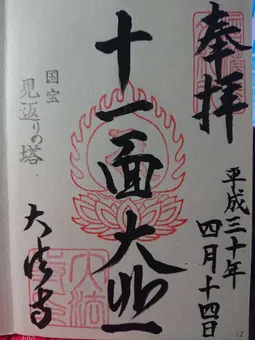 奉拝
平成三十年
四月十四日
十一面大悲
国宝
見返りの塔
大法寺
12